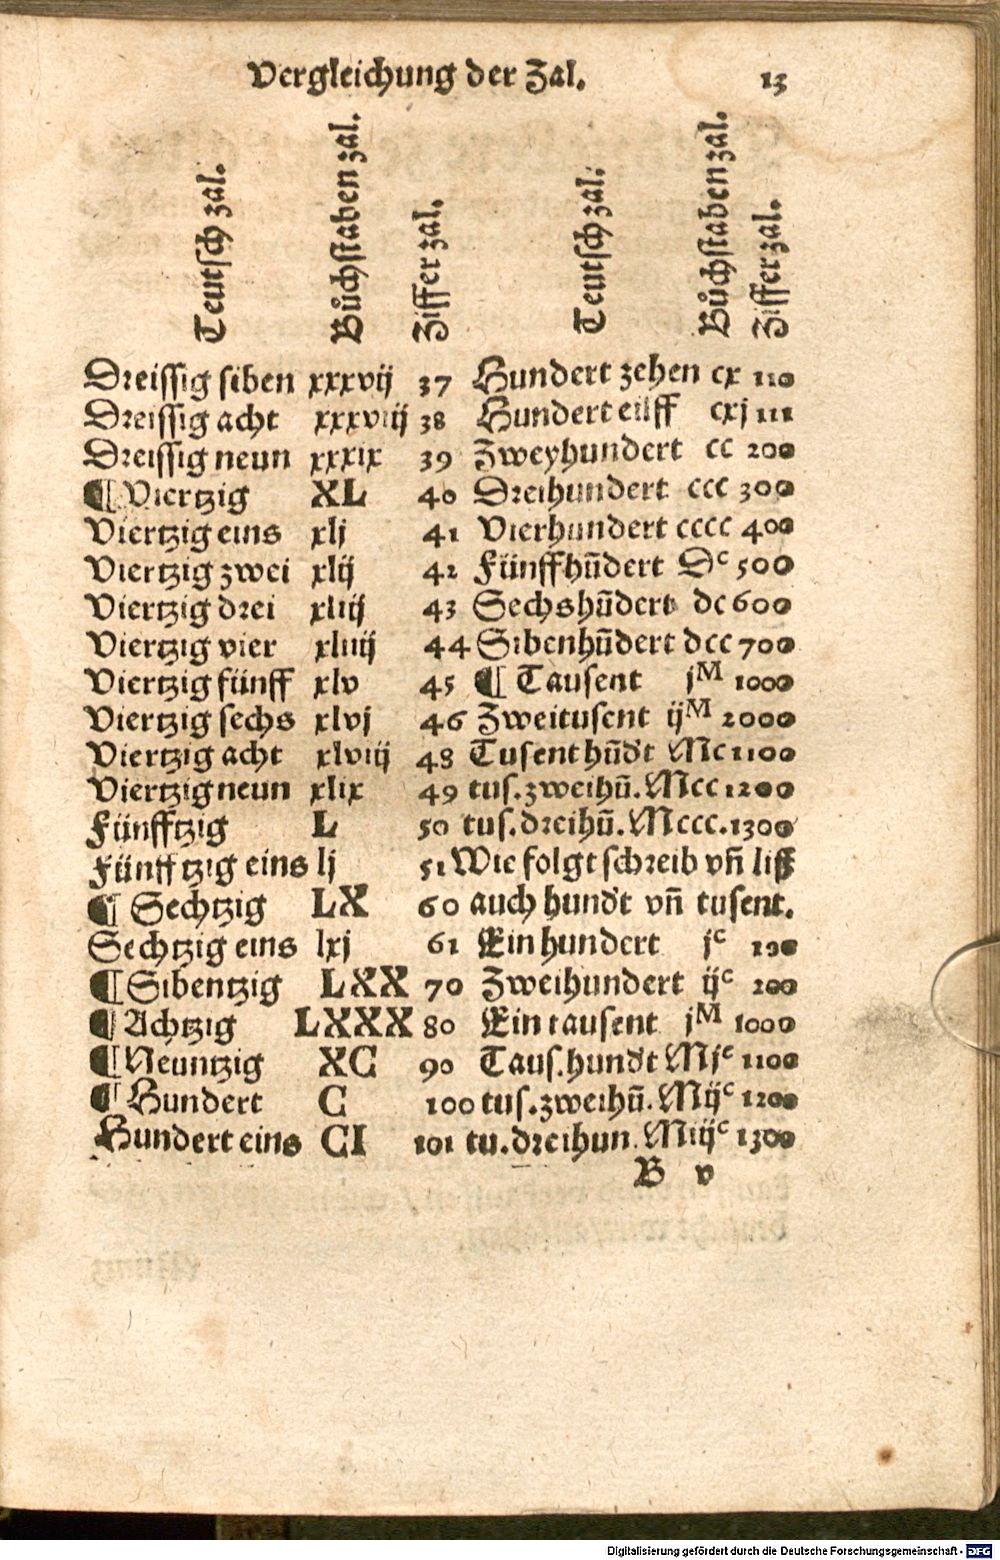 Vergleichung der Zal. 13
Teutsch zal.
Bůchstaben zal.
Ziffer zal.
Teutsch zal.
Bůchstaben zal.
Ziffer zal.
Dreissig siben xxxvij 37
Dreissig acht xxxviij 38
Dreissig neun xxxix 39
¶ Viertzig XL 40
Viertzig eins xlj 41
Viertzig zwei xlij 42
Viertzig drei xliij 43
Viertzig vier xliiij 44
Viertzig fünff xlv 45
Viertzig sechs xlvj 46
Viertzig acht xlviij 48
Viertzig neun xlix 49
Fünfftzig L 50
Fünfftzig eins lj 51
¶ Sechtzig LX 60
Sechtzig eins lxj 61
¶ Sibentzig LXX 70
¶ Achtzig LXXX 80
¶ Neuntzig XC 90
¶ Hundert C 100
Hundert eins CI 101
Hundert zehen cx 110
Hundert eilff cxj 111
Zweyhundert cc 200
Dreihundert ccc 300
Vierhundert cccc 400
Fünffhũdert Dᶜ 500
Sechshũdert dc 600
Sibenhũdert dcc 700
¶ Tausent jᴹ 1000
Zweitusent ijᴹ 2000
Tusent hũdt Mc 1100
tus. zweihũ. Mcc 1200
tus. dreihũ. Mccc. 1300
Wie folgt schreib vñ liß
auch hundt vñ tusent.
Ein hundert jᶜ 100
Zweihundert ijᶜ 200
Ein tausent jᴹ 1000
Taus. hundt Mjᶜ 1100
tus. zweihũ. Mijᶜ 1200
tu. dreihun. Miijᶜ 1300
B v
Digitalisierung gefördert durch die Deutsche Forschungsgemeinschaft - DFG